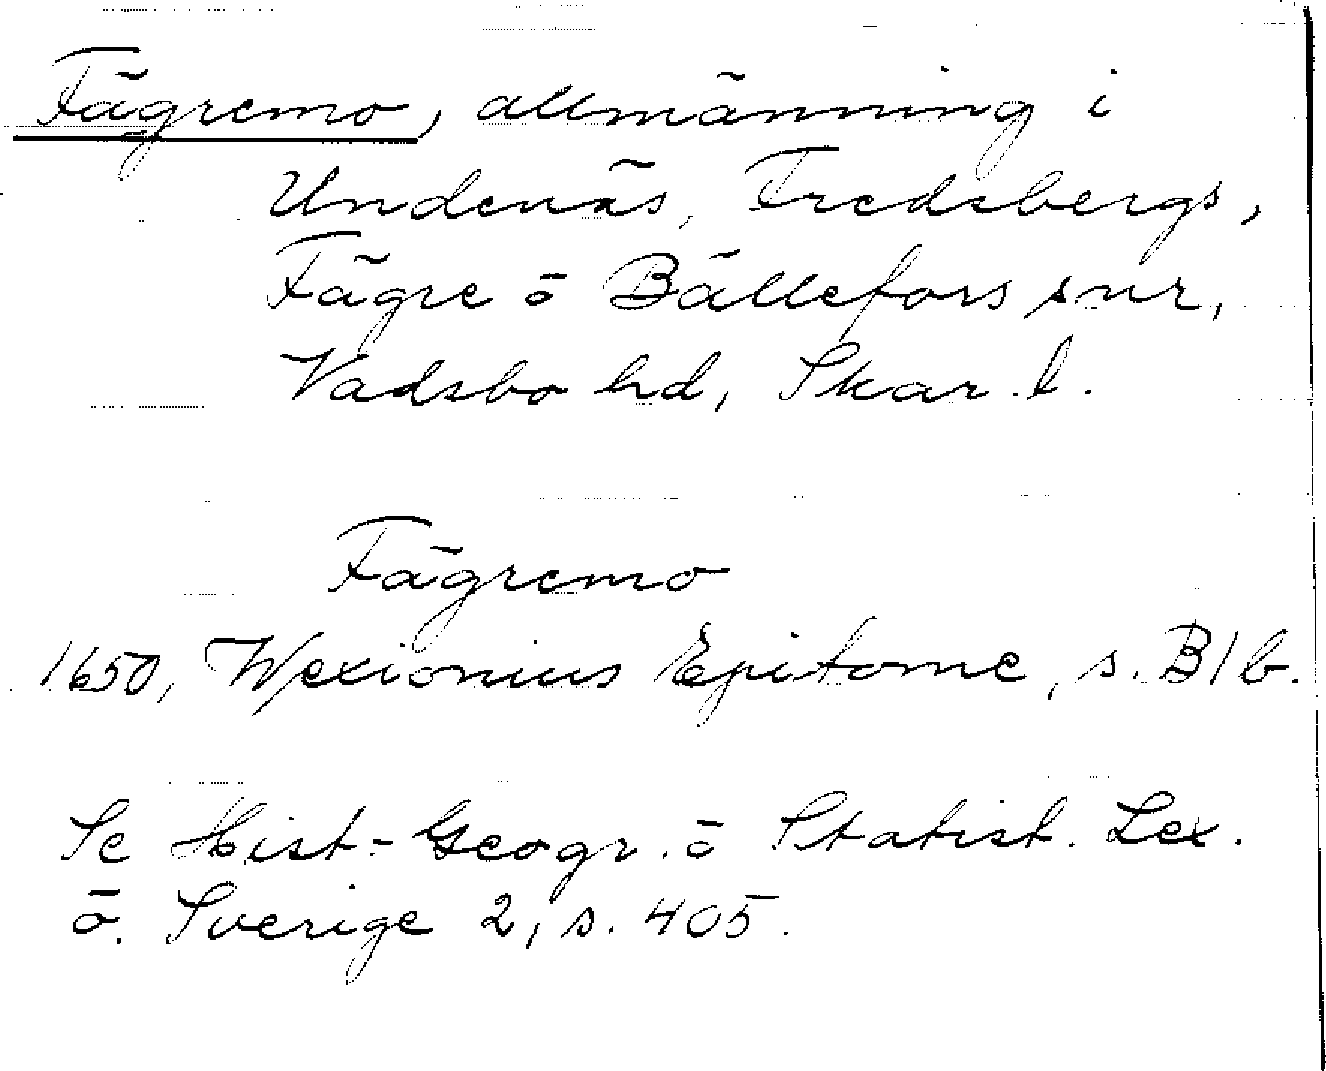 Fägremo, allmänning i
Undenäs, Fredsbergs,
Fägre ö Bällefors snr,
Vadsbo hd, Skar. l.
Fägremo
1650, Wexionius Epitome, s. B1b.
Se Hist.-Geogr. ö Statist. Lex.
ö. Sverige 2, s. 405.